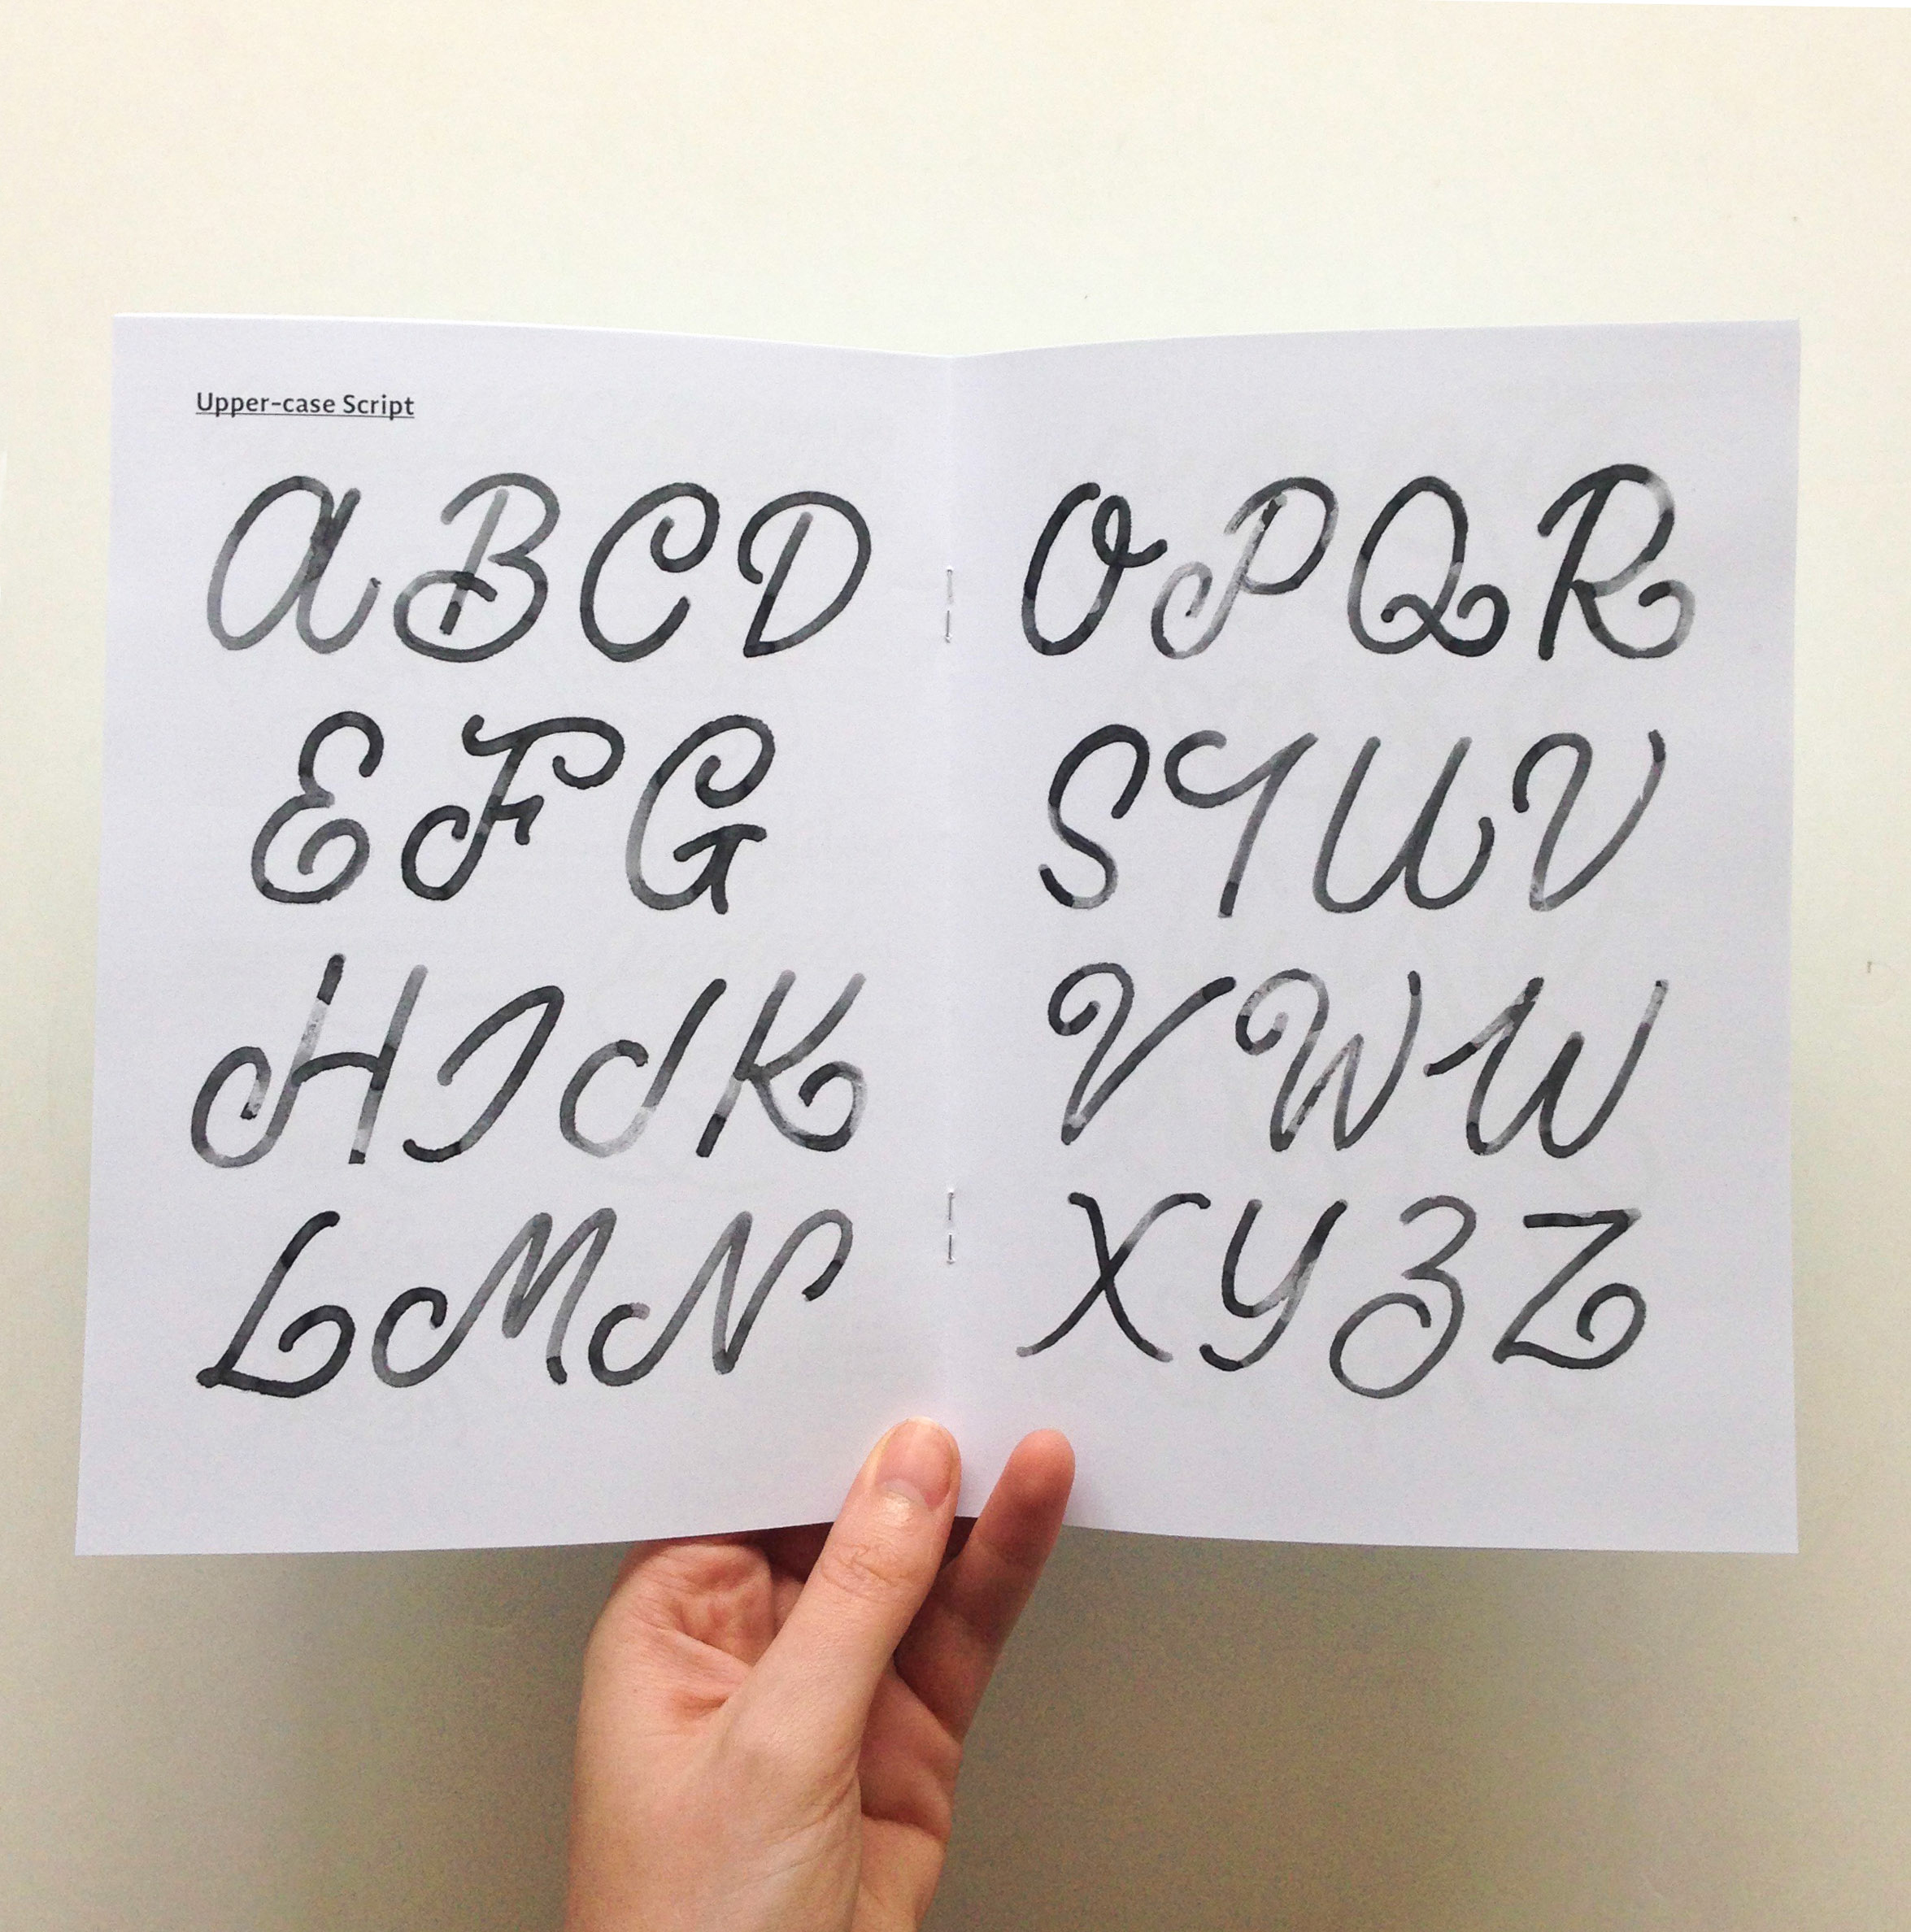 Upper-case Script
A B C D
E F G
H I J K
L M N
O P Q R
S T U V
V W W
X Y Z Z